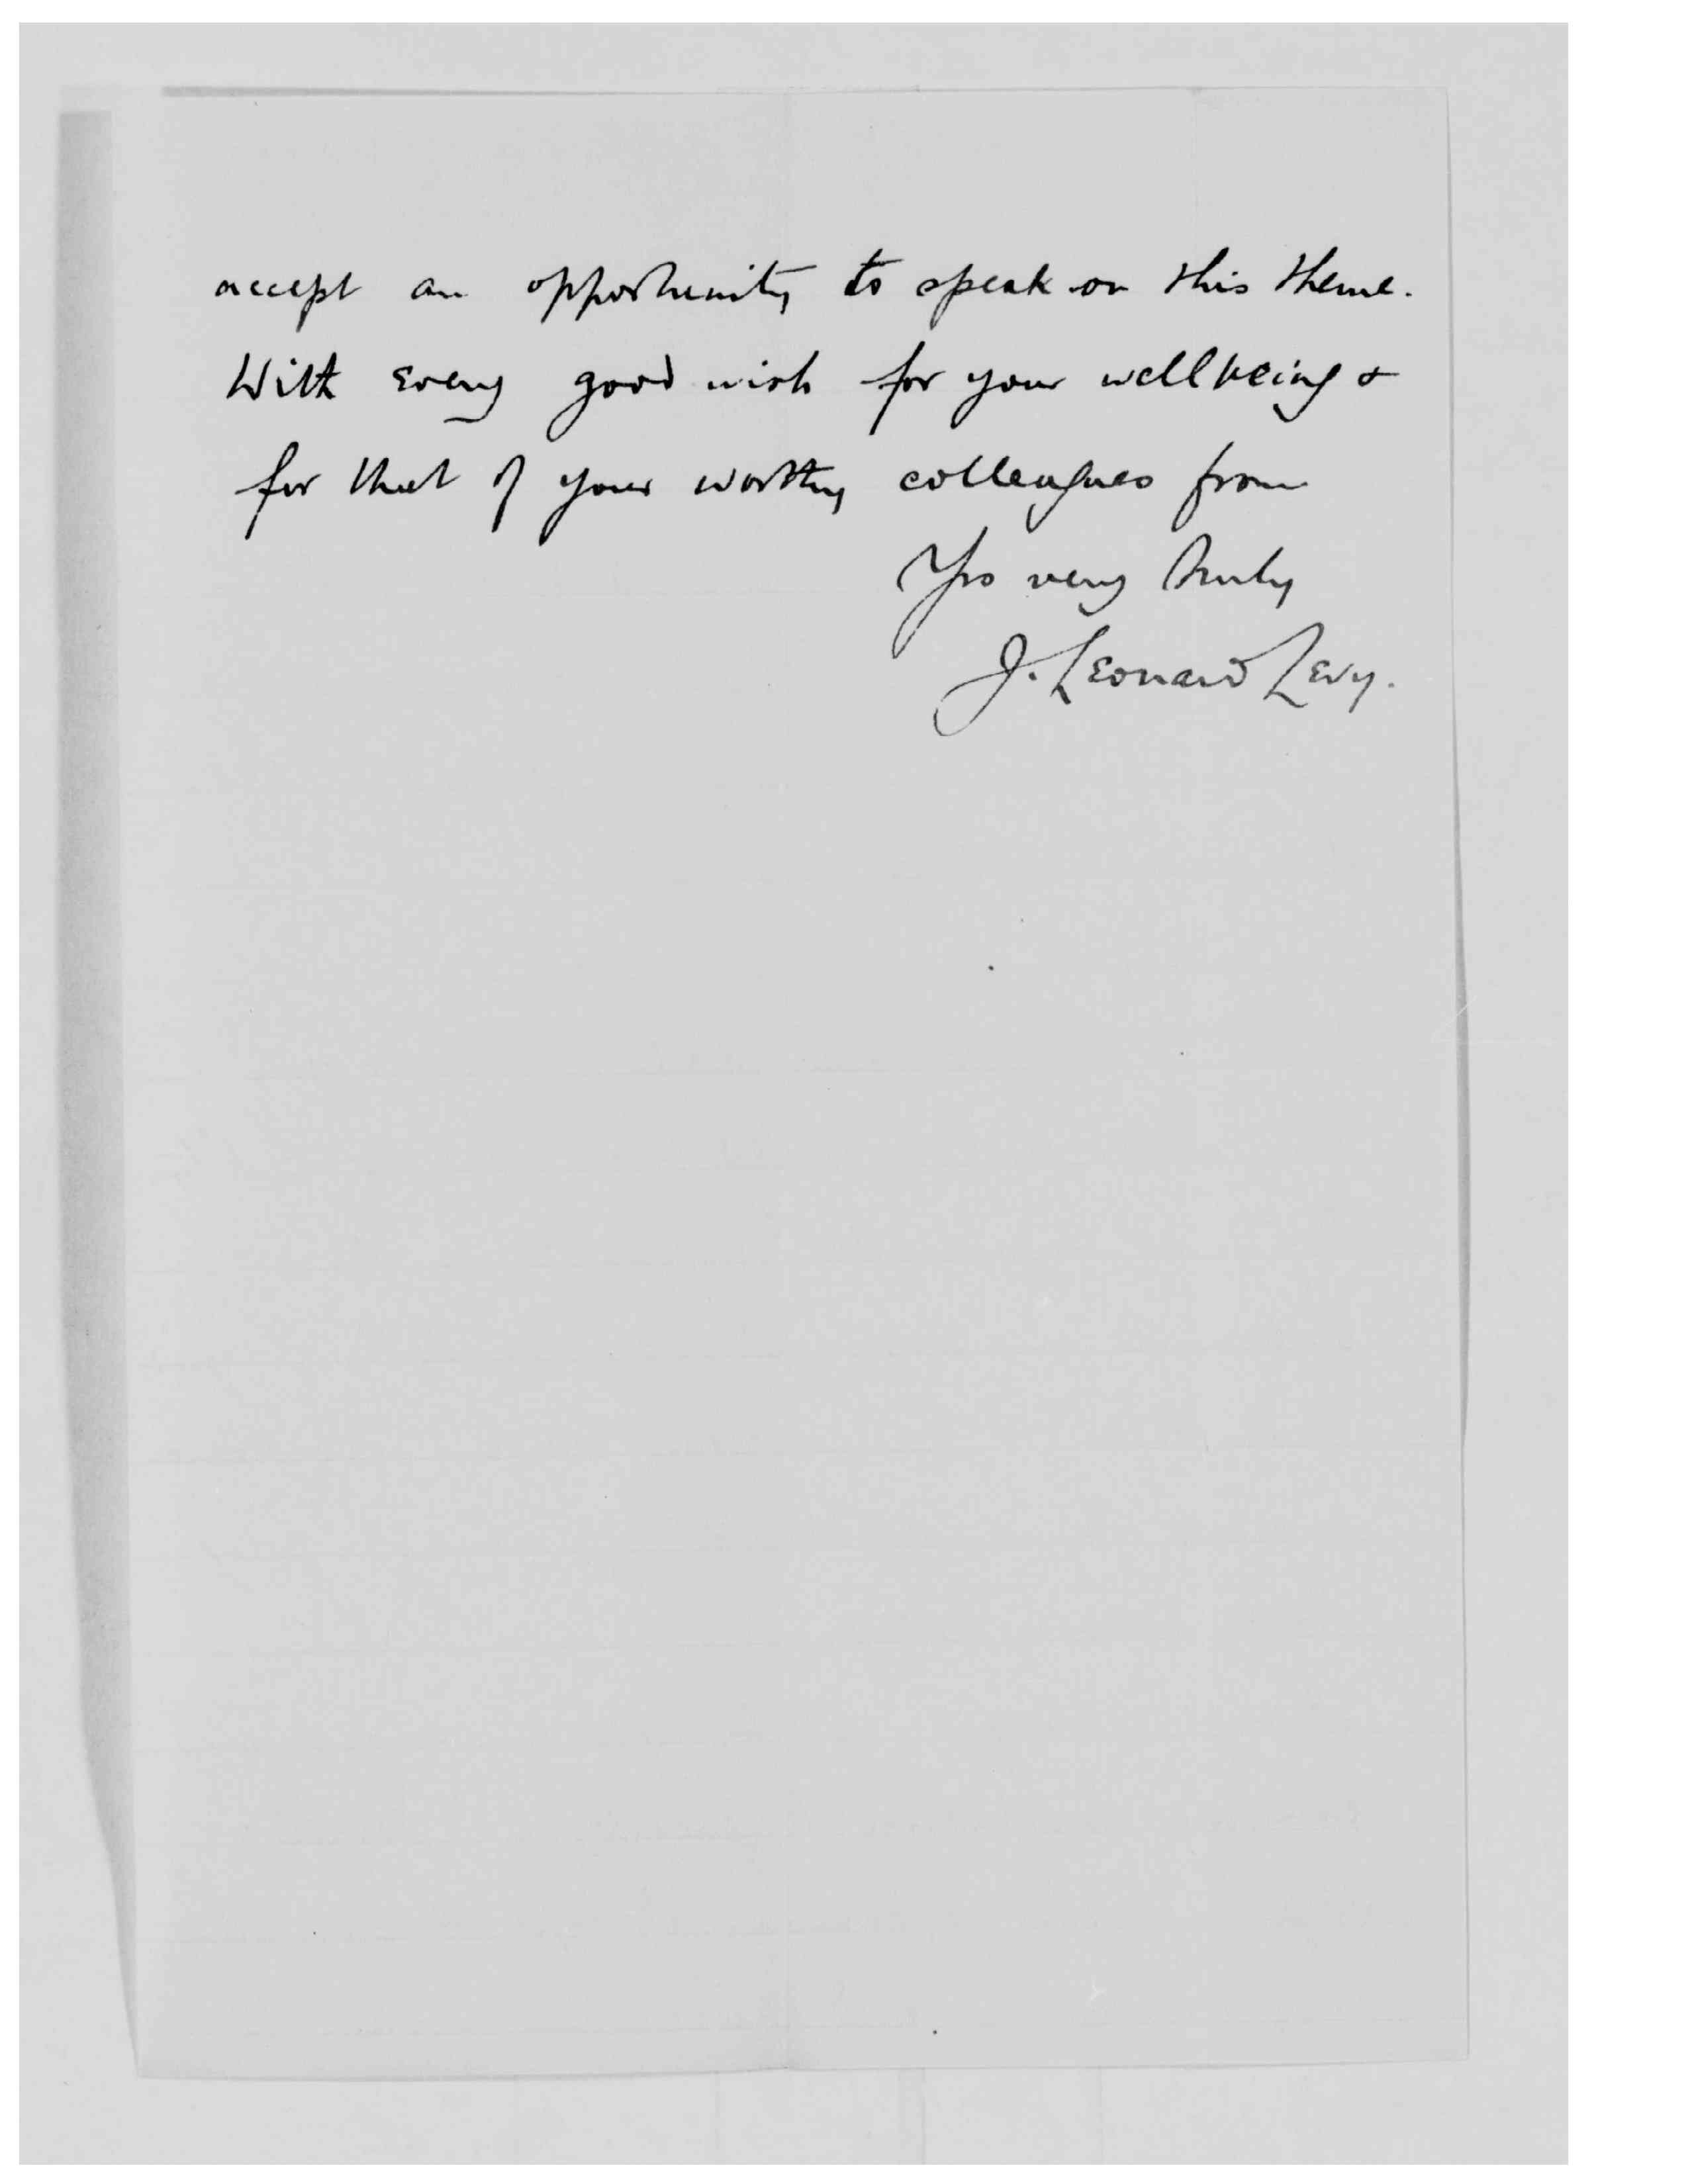 accept an opportunity to speak on this theme.
With every good wish for your wellbeing &
for that of your worthy colleagues from
Yrs very truly
J. Leonard Levy.